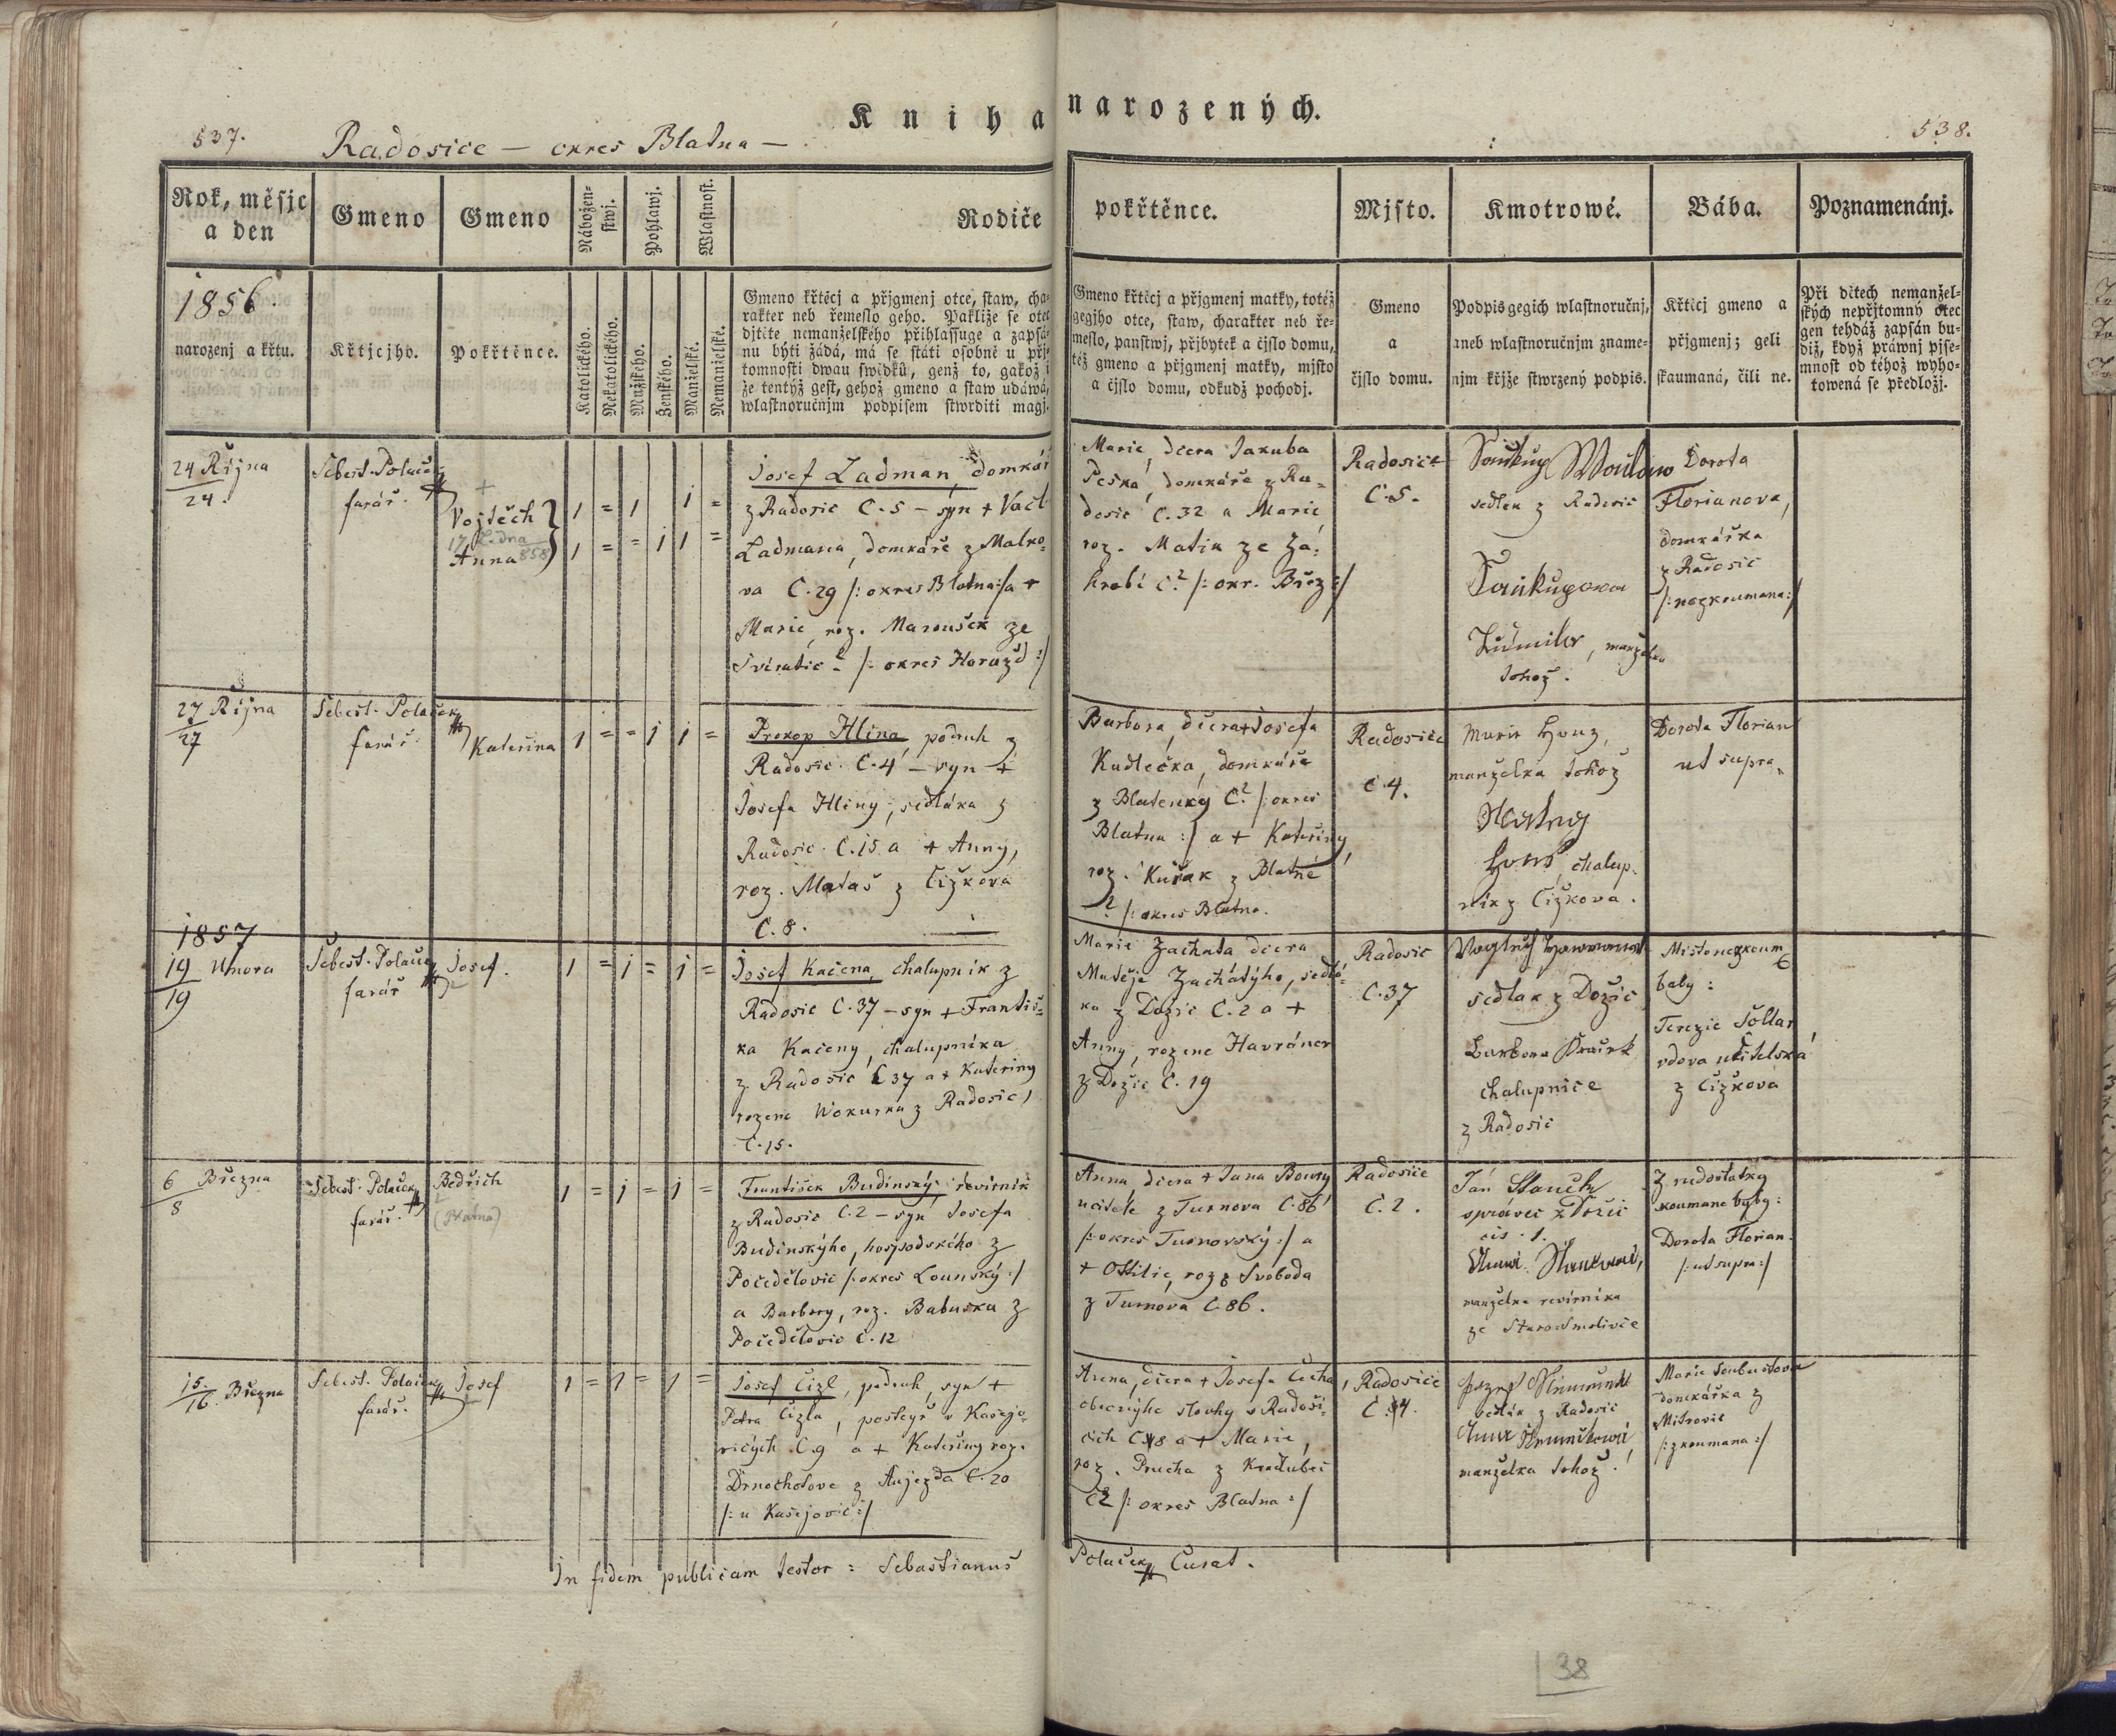 Kniha narozených.
537.
Radosice — okres Blatna —
538.
Rok, měsjc a den
Gmeno
Gmeno
Náboženstwj.
Pohlawj.
Wlastnost.
Rodiče
pokřtěnce.
Mjsto.
Kmotrowé.
Bába.
Poznamenánj.
1856
narozenj a křtu.
Křtjcjho.
Pokřtěnce.
Katolického.
Nekatolického.
Mužského.
Ženského.
Manželské.
Nemanželské.
Gmeno křtěcj a přjgmenj otce, staw, cha-
rakter neb řemeslo geho. Pakliže se otec
djtěte nemanželského přihlassuge a zapsá-
nu býti žádá, má se státi osobně u přj-
tomnosti dwau swědků, genž to, gakož i
že tentýž gest, gehož gmeno a staw udáwá,
wlastnoručnjm podpisem stwrditi magj.
Gmeno křticj a přjgmenj matky, totéž
gegjho otce, staw, charakter neb ře-
meslo, panstwj, přjbytek a čjslo domu,
též gmeno a přjgmenj matky, mjsto
a čjslo domu, odkudž pochodj.
Gmeno
a
čjslo domu.
Podpis gegich wlastnoručnj,
aneb wlastnoručnjm zname-
njm křjže stwrzený podpis.
Křticj gmeno a
přjgmenj; geli
skaumaná, čili ne.
Při dětech nemanžel-
ských nepřjtomný otec
gen tehdáž zapsán bu-
diž, když práwnj pjse-
mnost od téhož wyho-
towená se předložj.
24 Řijna
24.
Sebest. Polaček
farář.
Vojtěch
17 Ledna
Anna 858
1 = 1 1 =
1 = = 1 1 =
Josef Ladman, domkář
z Radosic C. 5 – syn + Vacl.
Ladmana, domkáře z Malko-
va C. 29 /: okres Blatna :/ a +
Marie, roz. Maroušek ze
Sviratic ? /: okres Horažd :/
Marie, dcera Jakuba
Peska, domkáře z Ra-
dosic C. 32 a Marie
roz. Matia ze Zá-
hrobí C? /: okr. Břez :/
Radosice
C. 5.
Saukup
sedlak z Radosic
Saukupowa
Ludmila, manželka
tohož.
Dorota
Florianova,
domkářka
z Radosic
/: nezkoumana :/
27 Řijna
27
Sebest. Polaček
farář.
Kateřina
1 = = 1 1 =
Prokop Hlina, podruh z
Radosic C. 4 – syn +
Josefa Hliny, sedláka z
Radosic C. 15 a + Anny,
roz. Mataš z Čížkova
C. 8.
Barbora, dcera + Josefa
Kudlečka, domkáře
z Blatenky C.? /: okres
Blatna :/ a + Kateřiny,
roz. Kuřak z Blatné
? /: okres Blatna.
Radosice
C 4.
Marie Houz,
manželka tohož
chalup-
nik z Čížkova.
Dorota Florian
ut supra
1857
19 Unora
19
Sebest. Polaček
farář
Josef.
1 = 1 = 1 =
Josef Kačena, chalupnik z
Radosic C. 37 – syn + Františ-
ka Kačeny, chalupníka
z Radosic C 37 a + Kateriny
rozene Wokurka z Radosic,
C. 15.
Marie Zachata dcera
Matěje Zachátýho, sedlá-
ka z Dožic C. 2 a +
Anny, rozene Havráner
z Dožic C. 19
Radosic
C. 37
sedlak z Dožic
Barbora
chalupnice
z Radosic
Misto nezkoum
baby:
Terezie Sollar
vdova učitelská
z Čížkova
6 Března
8
Sebest. Polaček
farář.
Bedřich
1 = 1 = 1 =
František Budinský, revirnik
z Radosic C. 2 – syn Josefa
Budinskýho, hospodského z
Počedělovic /: okres Lounský :/
a Barbory, roz. Babuska z
Počedělovic C. 12
Anna dcera + Jana Boury
ucitele z Turnova C. 86
/: okres Turnovský :/ a
+ Ottilie, roz. Svoboda
z Turnova C. 86.
Radosice
C. 2.
Ján Stauch
správec z Dožic
cis. 1.
manželka revirnika
ze Staro Smolivce
Z nedostatky
zkoumane baby:
Dorota Florian
/: ut supra :/
15.
16. Března
Sebest. Polaček
farář.
Josef
1 = 1 = 1 =
Josef Cizl, podruh, syn +
Petra Cizla, pastyř v Kasejo-
vicých C. 9 a + Kateřiny roz.
Drnochotove z Aujezda C. 20
/: u Kasejovic :/
Anna, dcera + Josefa Čecha,
obecnýho slouhy v Radoši-
cich C. 8 a + Marie,
roz. Prucha z Kradubec
C? /: okres Blatna :/
Radosice
C. 4.
Jozef
sedlák z Radosic
manželka tohož.
Marie
domkářka z
Mitrovic
/: zkoumana :/
In fidem publicam testor: Sebastianus Polaček Curat.
38